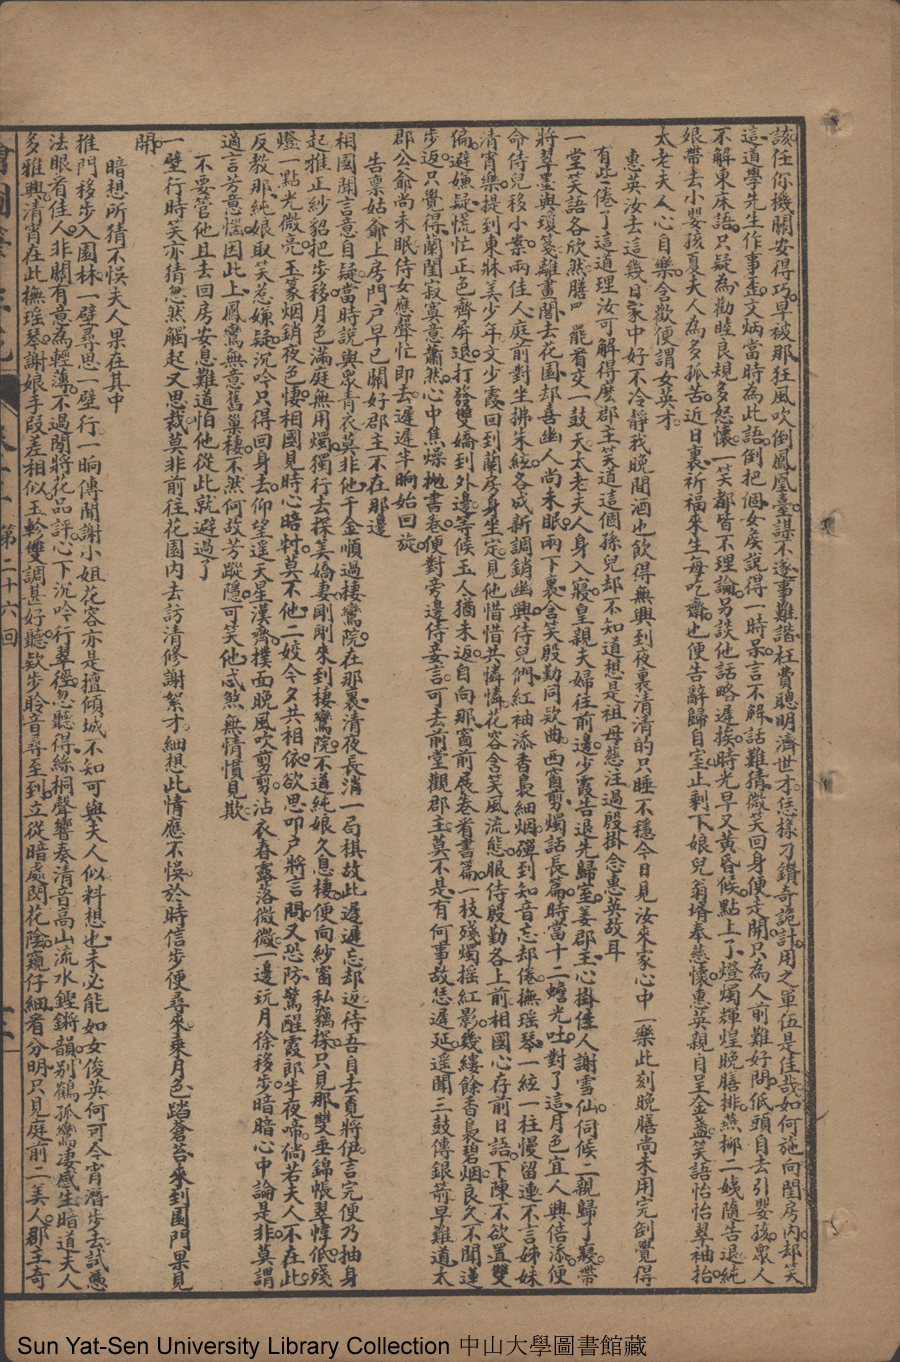 該任你機關安得巧早被那狂風吹倒鳳凰臺謀不遂事難諧枉費聰明濟世才恁樣刁鑽奇詭計用之軍伍是佳哉如何施向閨房內却笑
這道學先生作事歪文炳當時為此語倒把個女矣說得一時呆言不解話難猜微笑回身便走開只為人前難好問低頭自去引嬰孩眾人
不解東床語只疑為勸睦良規多恕懷一笑都皆不理論另談他話略遲挨時光早又黃昏候點上了燈燭輝煌晚膳排燕柳二姨隨告退純
娘帶去小嬰孩夏夫人為多孤苦近日裏祈福來生每吃齋也便告辭歸自室止剩下娘兒翁壻奉慈懷惠英親自呈金盞笑語怡怡翠袖抬
太老夫人心自樂含歡便謂女英才
惠英汝去這幾日家中好不冷靜我晚間酒也飲得無興到夜裏清清的只睡不穩今日見汝來家心中一樂此刻晚膳尚未用完倒覺得
有些倦了這道理汝可解得麼郡主笑道這個孫兒却不知道想是祖母慈注過殷掛念惠英故耳
一堂笑語各欣然膳罷看交一鼓天太老夫人身入寢皇親夫婦往前邊少霞告退先歸室姜郡主心掛佳人謝雪仙伺候二親歸了寢帶
將翠墨與瓊箋離畫閣去花園却喜幽人尚未眠兩下裏含笑殷勤同欵曲西窗剪燭話長篇時當十二蟾光吐對了這月色宜人興倍添便
命侍兒移小案兩佳人庭前對坐拂朱絃各成新調銷幽興侍兒們紅袖添香裊細烟彈到知音忘却倦撫瑶琴一絃一柱慢留連不言姊妹
清宵樂提到東牀美少年文少霞回到蘭房身坐定見他惜惜共憐憐花容含笑風流態服侍殷勤各上前相國心存前日語下陳不欲置雙
偏避嫌疑慌忙正色齊屏退打發雙嬌到外邊等候玉人猶未返自向那窗前展卷看書篇一枝殘燭摇紅影幾縷餘香裊碧烟良久不聞蓮
步返只覺得蘭閨寂寞意蕭然心中焦燥拋書卷便對旁邊侍妾言可去前堂觀郡主莫不是有何事故恁遲延遥聞三鼓傳銀箭早難道太
郡公爺尚未眠侍女應聲忙即去遲遲半晌始回旋
告稟姑爺上房門户早已關好郡主不在那邊
相國聞言意自疑當時說與衆青衣莫非他千金順過棲鸞院在那裏清夜長消一局棋故此遲遲忘却返待吾自去覓將伊言完便乃抽身
起推正紗貂把步移月色滿庭無用燭獨行去探美嬌妻剛剛來到棲鸞院不道純娘久息棲便向紗窗私竊探只見那雙垂錦帳翠幃低殘
燈一點光微亮玉篆烟銷夜色悽相國見時心暗忖莫不他二姣今夕共相依欲思叩户將言問又恐防驚醒霞郎半夜啼倘若夫人不在此
反教那純娘取笑惹嫌疑沉吟只得回身去仰望遥天星漢齊撲面晚風吹剪剪沾衣春露落微微一邊玩月徐移步暗暗心中論是非莫謂
適言芳意惱因此上鳳鸞無意舊巢棲不然何故芳蹤隱可笑他忒煞無情慣見欺
不要管他且去回房安息難道怕他從此就避過了
一壁行時笑亦猜忽然觸起又思裁莫非前往花園內去訪清修謝絮才細想此情應不悞於時信步便尋來乘月色踏蒼苔來到園門果見
開
暗想所猜不悞夫人果在其中
推門移步入園林一壁尋思一壁行一晌傳聞謝小姐花容亦是擅傾城不知可與夫人似料想也未必能如女俊英何可今宵潛步去試慿
法眼看佳人非關有意為輕薄不過閒將花品評心下沉吟行翠徑忽聽得絲桐聲響奏清音高山流水鏗鏘韻别鶴孤鸞凄感生暗道夫人
多雅興清宵在此撫瑶琴謝娘手段差相似玉軫雙調甚好聽欵步聆音尋至到立從暗處閃花陰窺仔細看分明只見庭前二美人郡主奇
第二十六回
Sun Yat-Sen University Library Collection 中山大學圖書館藏